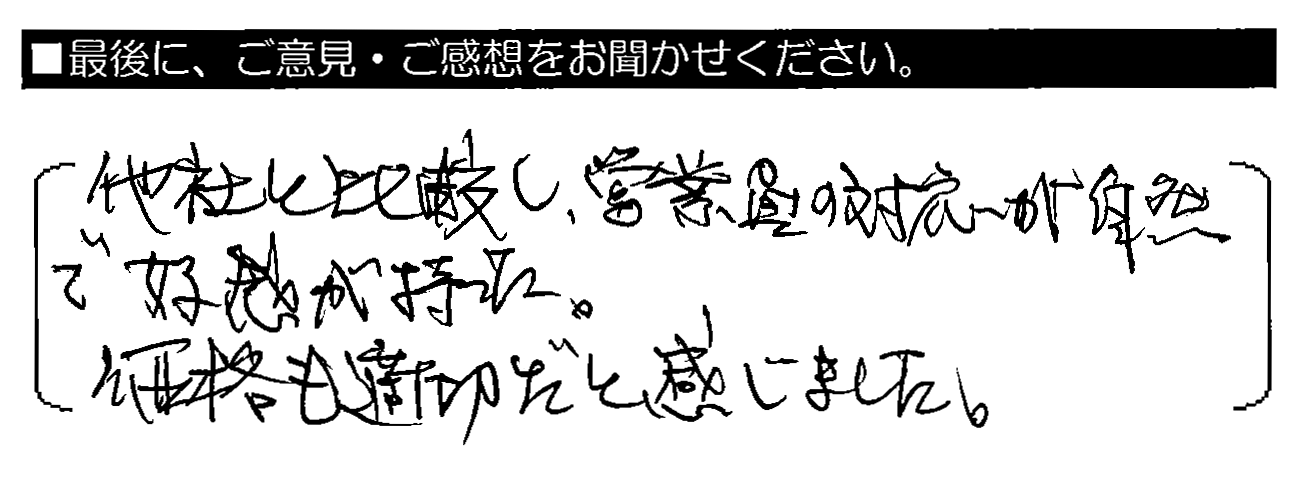 ■最後に、ご意見・ご感想をお聞かせください。
他社と比較し、営業員の対応が自然
で好感が持てた。
価格も適切だと感じました。